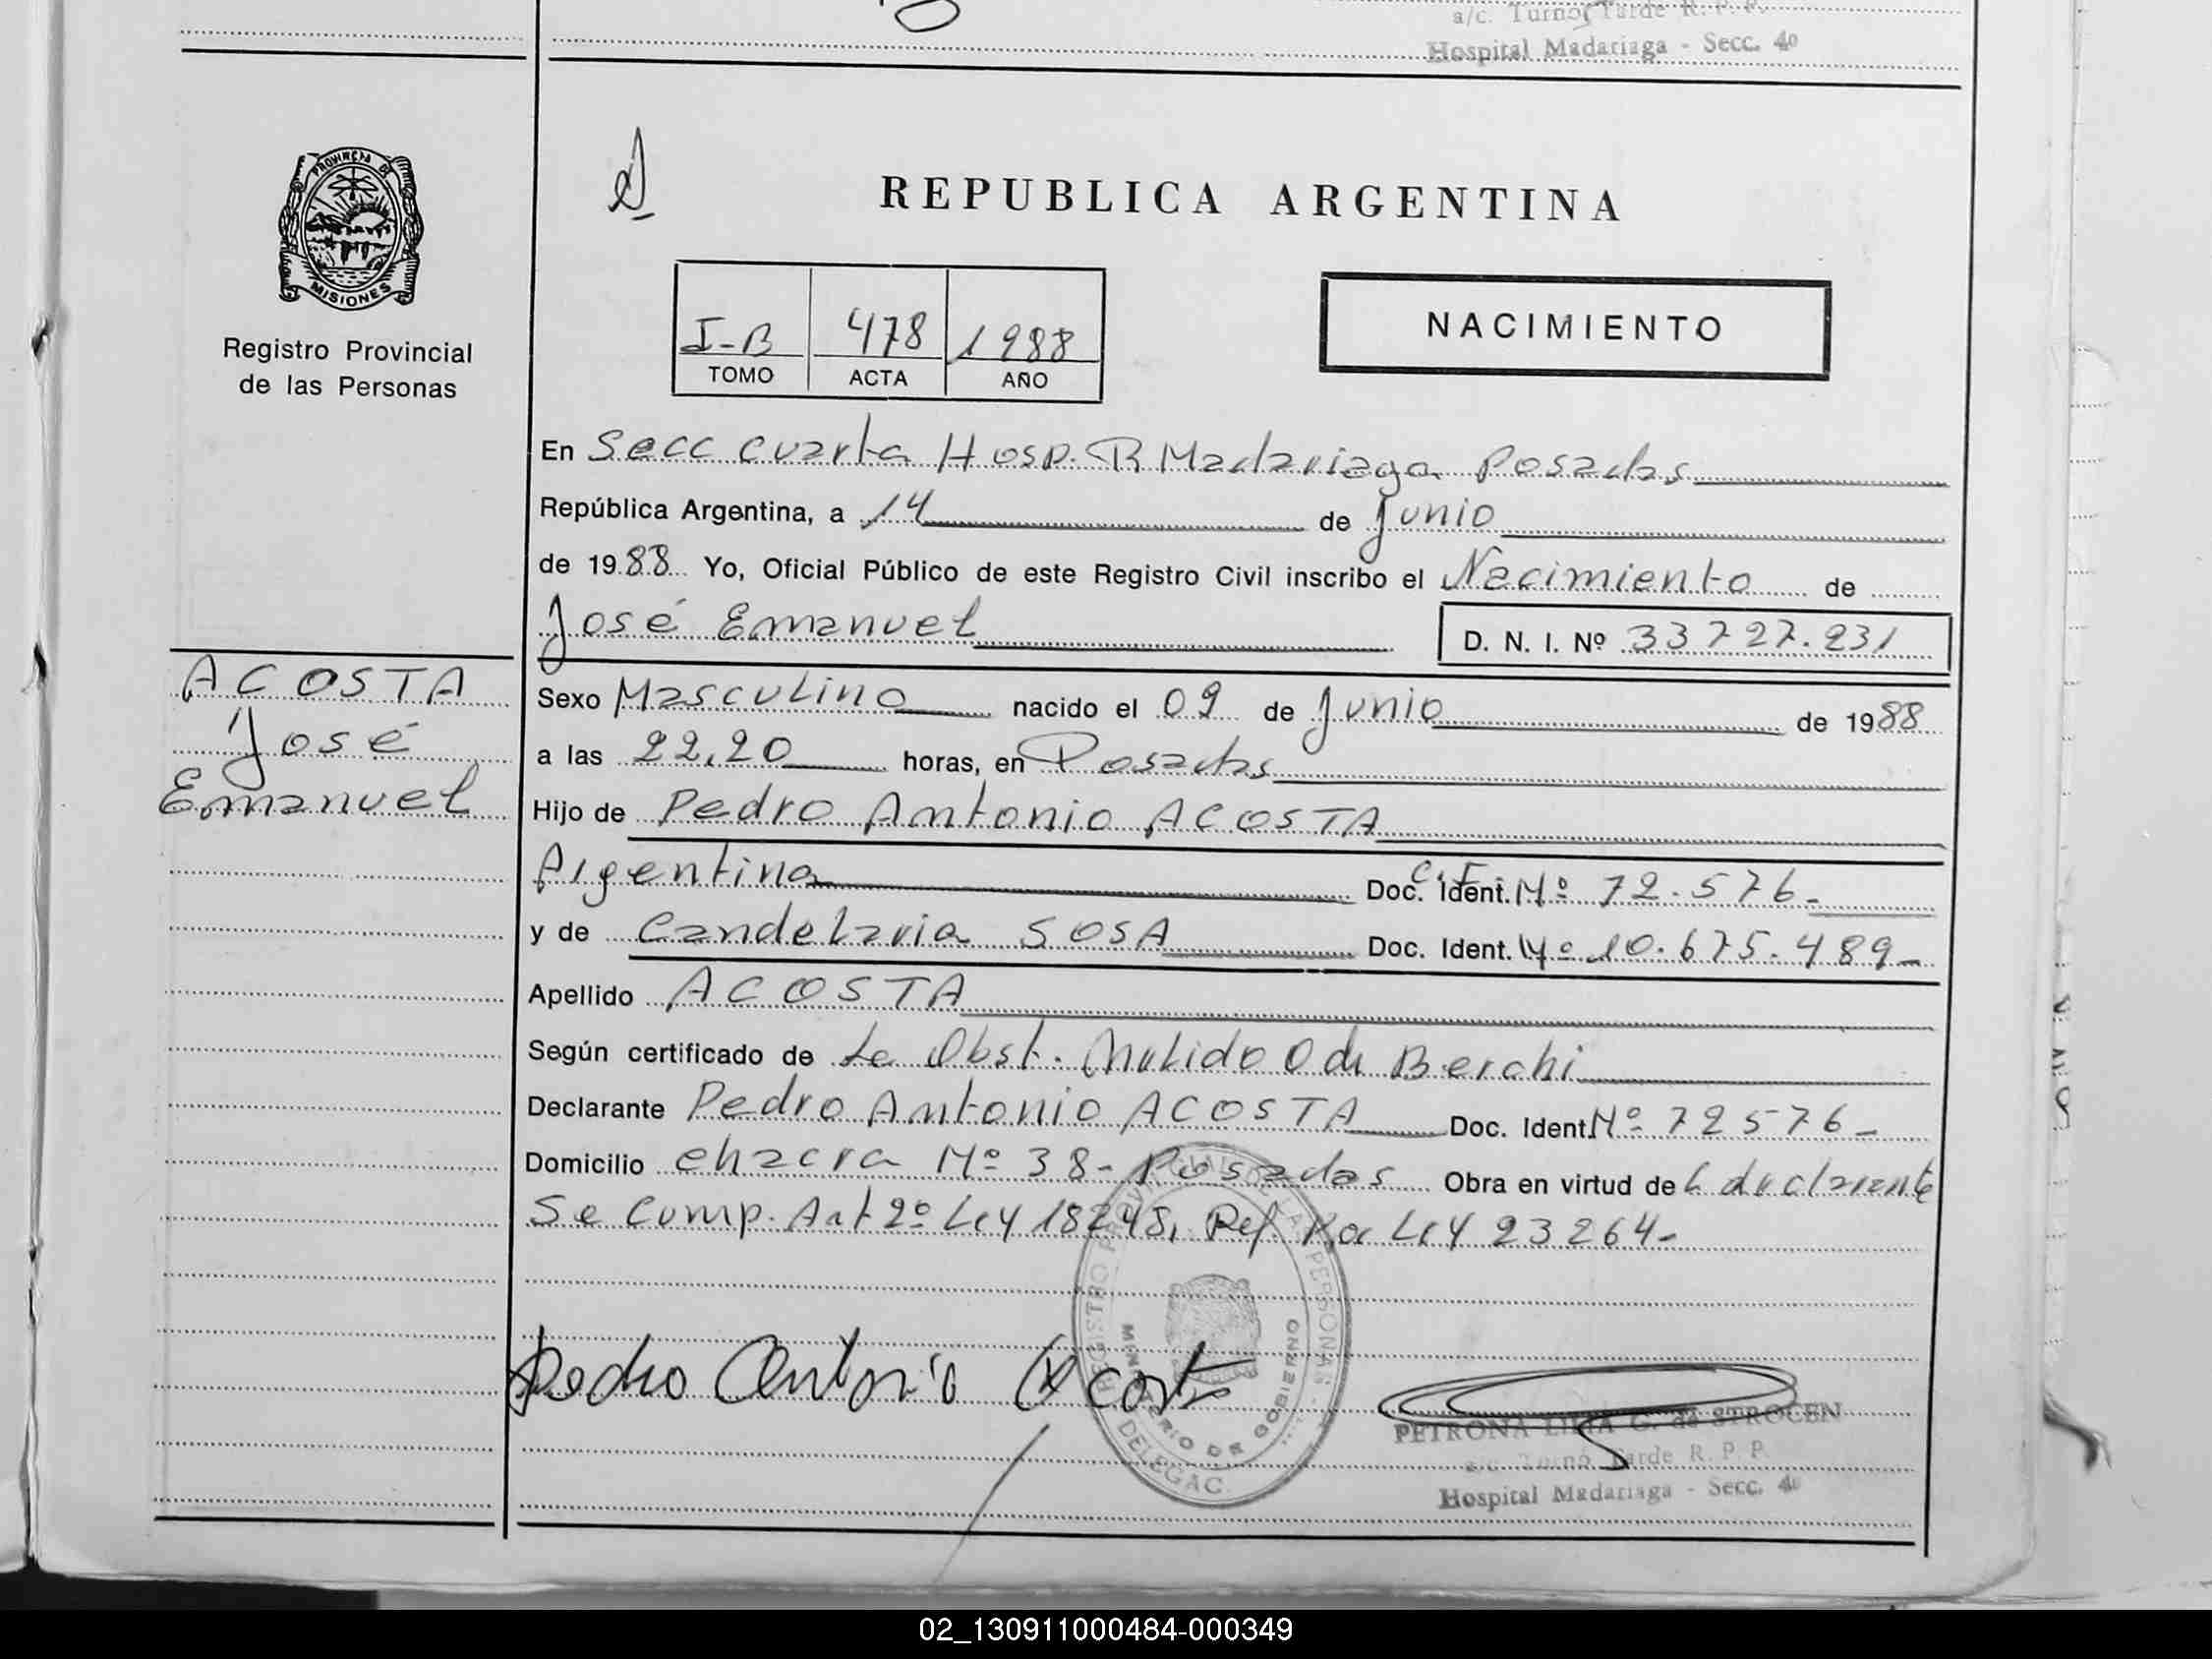 a/c. Turno Tarde R. P. P.
Hospital Madariaga - Secc. 4º
PROVINCIA DE
MISIONES
Registro Provincial
de las Personas
REPUBLICA ARGENTINA
I-B 478 1988
TOMO ACTA AÑO
NACIMIENTO
En Secc cuarta Hosp. R Madariaga Posadas
República Argentina, a 14 de Junio
de 1988 Yo, Oficial Público de este Registro Civil inscribo el Nacimiento de
José Emanuel D. N. I. Nº 33727.231
ACOSTA
José
Emanuel
Sexo Masculino nacido el 09 de Junio de 1988
a las 22,20 horas, en Posadas
Hijo de Pedro Antonio ACOSTA
Argentina Doc. Ident. C.I. Nº 72.576-
y de Candelaria SOSA Doc. Ident. Nº 10.675.489-
Apellido ACOSTA
Según certificado de La Obst. Berchi
Declarante Pedro Antonio ACOSTA Doc. Ident. Nº 72576-
Domicilio chacra Nº 38- Posadas Obra en virtud de declarante
Se Comp. Art 2º Ley 18248, Ref. Por Ley 23264-
REGISTRO PROVINCIAL DE LAS PERSONAS
MINISTERIO DE GOBIERNO
DELEGAC.
Pedro Antonio Acosta
PETRONA LIDIA G. de STROCEN
a/c Turno Tarde R. P. P.
Hospital Madariaga - Secc. 4º
02_130911000484-000349